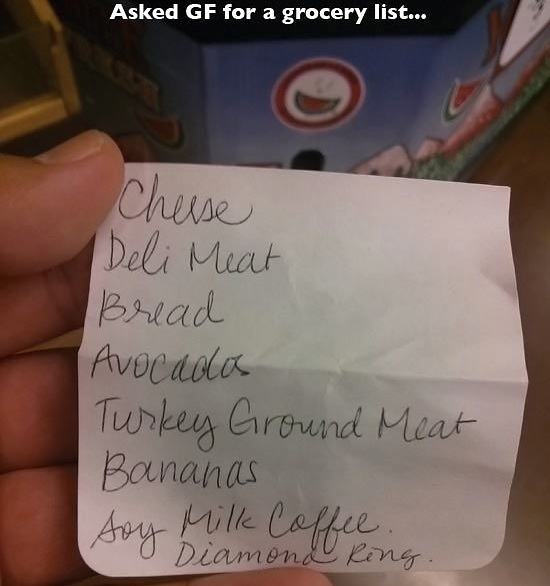 Asked GF for a grocery list...
Cheese
Deli Meat
Bread
Avocados
Turkey Ground Meat
Bananas
Soy Milk Coffee.
Diamond Ring.